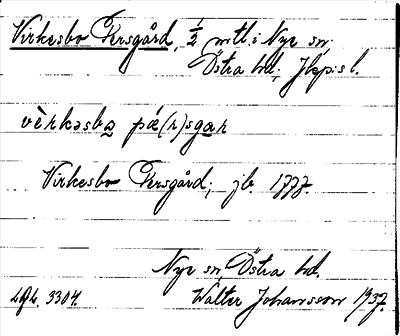 Virkesbo Persgård, ½ mtl. i Nye sn,
Östra hd, Jkpgs l.
vèrkəsbo pǽ(r)sgar
Virkesbo Persgård; jb. 1777.
Nye sn, Östra hd.
Walter Johansson 1937.